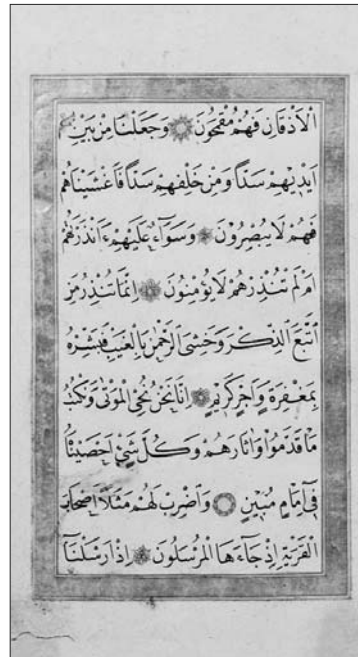 الْاَذْقَانِ فَهُمْ مُقْمَحُونَ وَجَعَلْنَا مِنْ بَيْنِ
اَيْدِيهِمْ سَدًّا وَمِنْ خَلْفِهِمْ سَدًّا فَاَغْشَيْنَاهُمْ
فَهُمْ لَا يُبْصِرُونَ وَسَوَآءٌ عَلَيْهِمْ ءَاَنْذَرْتَهُمْ
اَمْ لَمْ تُنْذِرْهُمْ لَا يُؤْمِنُونَ اِنَّمَا تُنْذِرُ مَنِ
اتَّبَعَ الذِّكْرَ وَخَشِىَ الرَّحْمٰنَ بِالْغَيْبِ فَبَشِّرْهُ
بِمَغْفِرَةٍ وَاَجْرٍ كَرِيمٍ اِنَّا نَحْنُ نُحْىِ الْمَوْتٰى وَنَكْتُبُ
مَا قَدَّمُوا وَاٰثَارَهُمْ وَكُلَّ شَىْءٍ اَحْصَيْنَاهُ
فٖٓى اِمَامٍ مُبٖينٍ وَاضْرِبْ لَهُمْ مَثَلًا اَصْحَابَ
الْقَرْيَةِ اِذْ جَآءَهَا الْمُرْسَلُونَ اِذْ اَرْسَلْنَآ